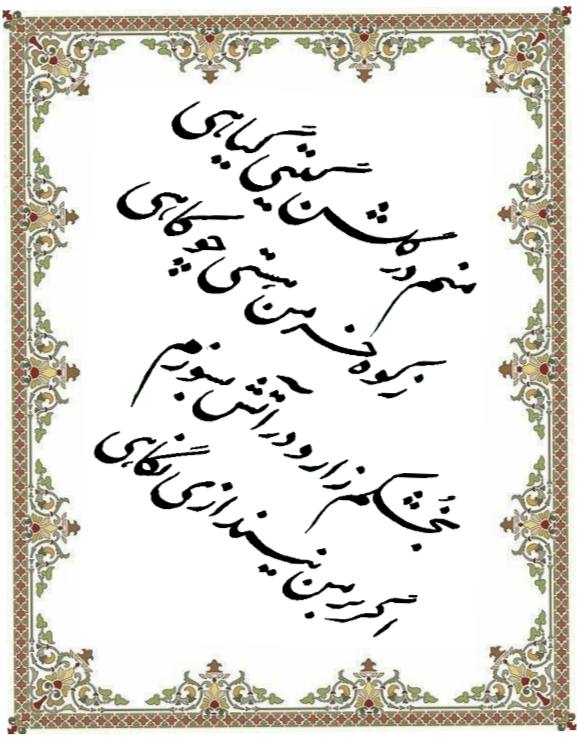 منم در گلشن گیتی گیاهی
ز کوه خرمن هستی چو کاهی
بخُشکم زار و در آتش بسوزم
اگر بر من نیندازی نگاهی